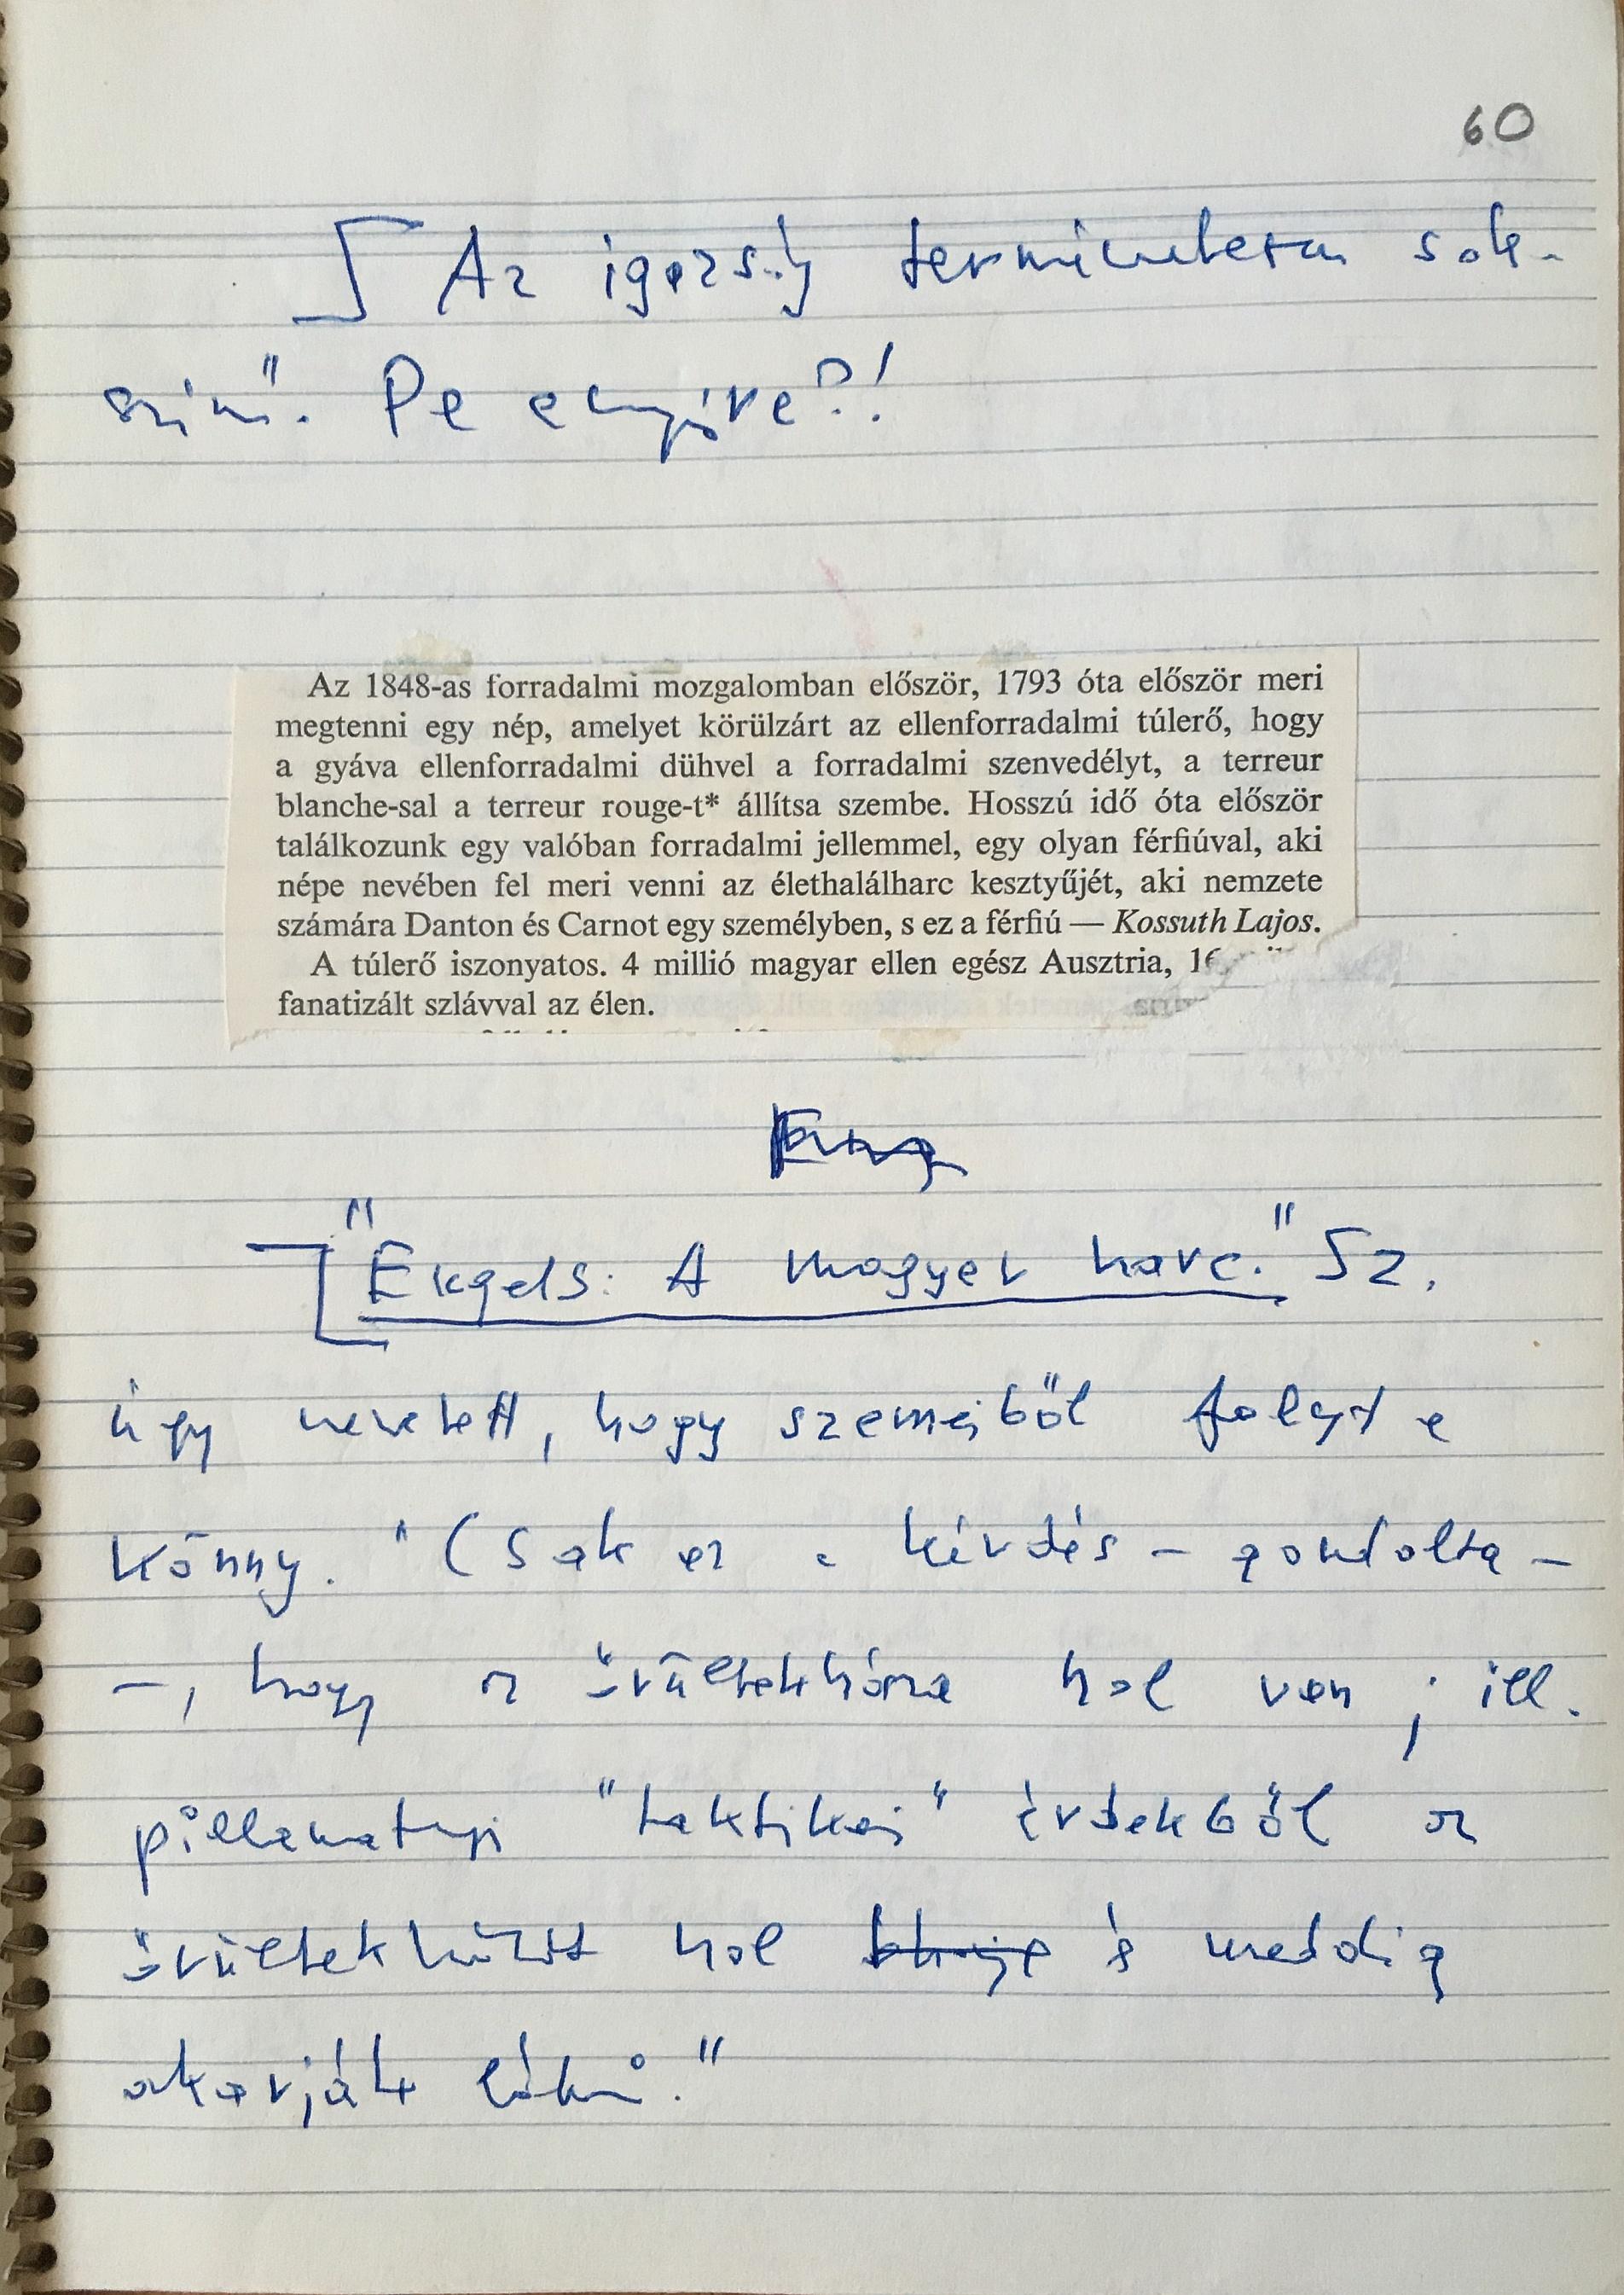 60
Az igazság természetesen sok-
színű. De ennyire?!
Az 1848-as forradalmi mozgalomban először, 1793 óta először meri
megtenni egy nép, amelyet körülzárt az ellenforradalmi túlerő, hogy
a gyáva ellenforradalmi dühvel a forradalmi szenvedélyt, a terreur
blanche-sal a terreur rouge-t* állítsa szembe. Hosszú idő óta először
találkozunk egy valóban forradalmi jellemmel, egy olyan férfiúval, aki
népe nevében fel meri venni az élethalálharc kesztyűjét, aki nemzete
számára Danton és Carnot egy személyben, s ez a férfiú — Kossuth Lajos.
A túlerő iszonyatos. 4 millió magyar ellen egész Ausztria, 16
fanatizált szlávval az élen.
"Engels: A magyar harc." Sz.
úgy nevetett, hogy szeméből folyt a
könny. "(Csak az a kérdés – gondolta –
–, hogy az őrültekháza hol van; ill.
pillanatnyi "taktikai" érdekből az
őrültek házát hol és meddig
akarják látni."